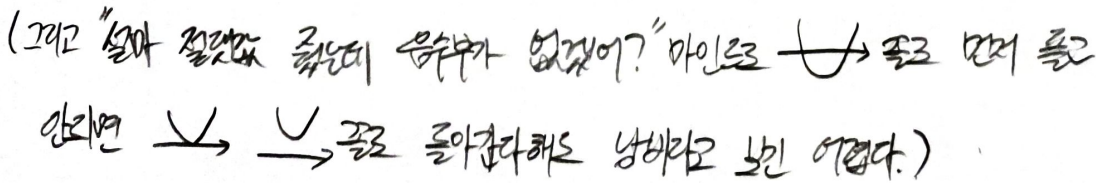 (그리고 "설마 절댓값 줬는데 음수부가 없겠어?" 마인드로 꼴로 먼저 풀고
안되면 꼴로 돌아갔다해도 낭비라고 보긴 어렵다.)